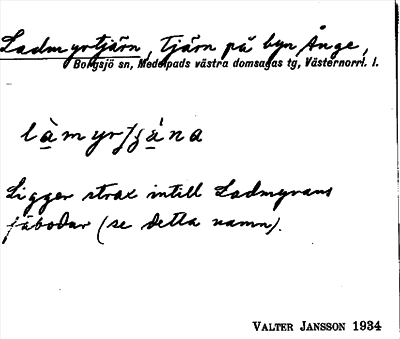 Ladmyrtjärn, tjärn på byn Ånge,
Borgsjö sn, Medelpads västra domsagas tg, Västernorrl. l.
Ligger strax intill Ladmyrans
fäbodar (se detta namn).
VALTER JANSSON 1934